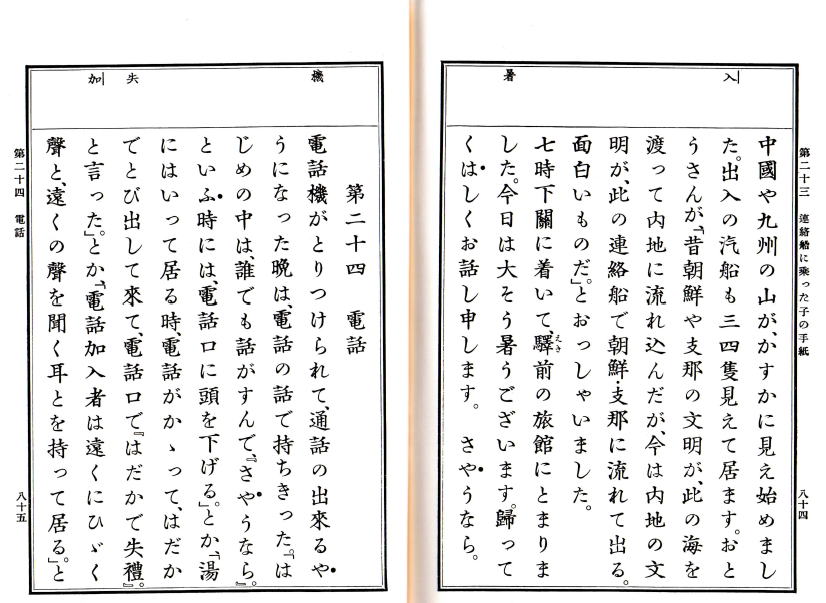 第二十三 連絡船に乘った子の手紙
八十四
入
暑
中國や九州の山が、かすかに見え始めまし
た。出入の汽船も三四隻見えて居ます。おと
うさんが、「昔朝鮮や支那の文明が、此の海を
渡って內地に流れ込んだが、今は內地の文
明が、此の連絡船で朝鮮・支那に流れて出る。
面白いものだ。」とおっしゃいました。
七時下關に着いて、驛前の旅館にとまりま
えき
した。今日は大そう暑うございます。歸って
くはしくお話し申します。 さやうなら。
機
失
加
第二十四 電話
電話機がとりつけられて、通話の出來るや
うになった晚は、電話の話で持ちきった。「は
じめの中は、誰でも話がすんで、『さやうなら』。
といふ時には、電話口に頭を下げる。」とか、「湯
にはいって居る時、電話がかゝって、はだか
でとび出して來て、電話口で『はだかで失禮』。
と言った。」とか、「電話加入者は遠くにひゞく
聲と、遠くの聲を聞く耳とを持って居る。」と
第二十四 電話
八十五